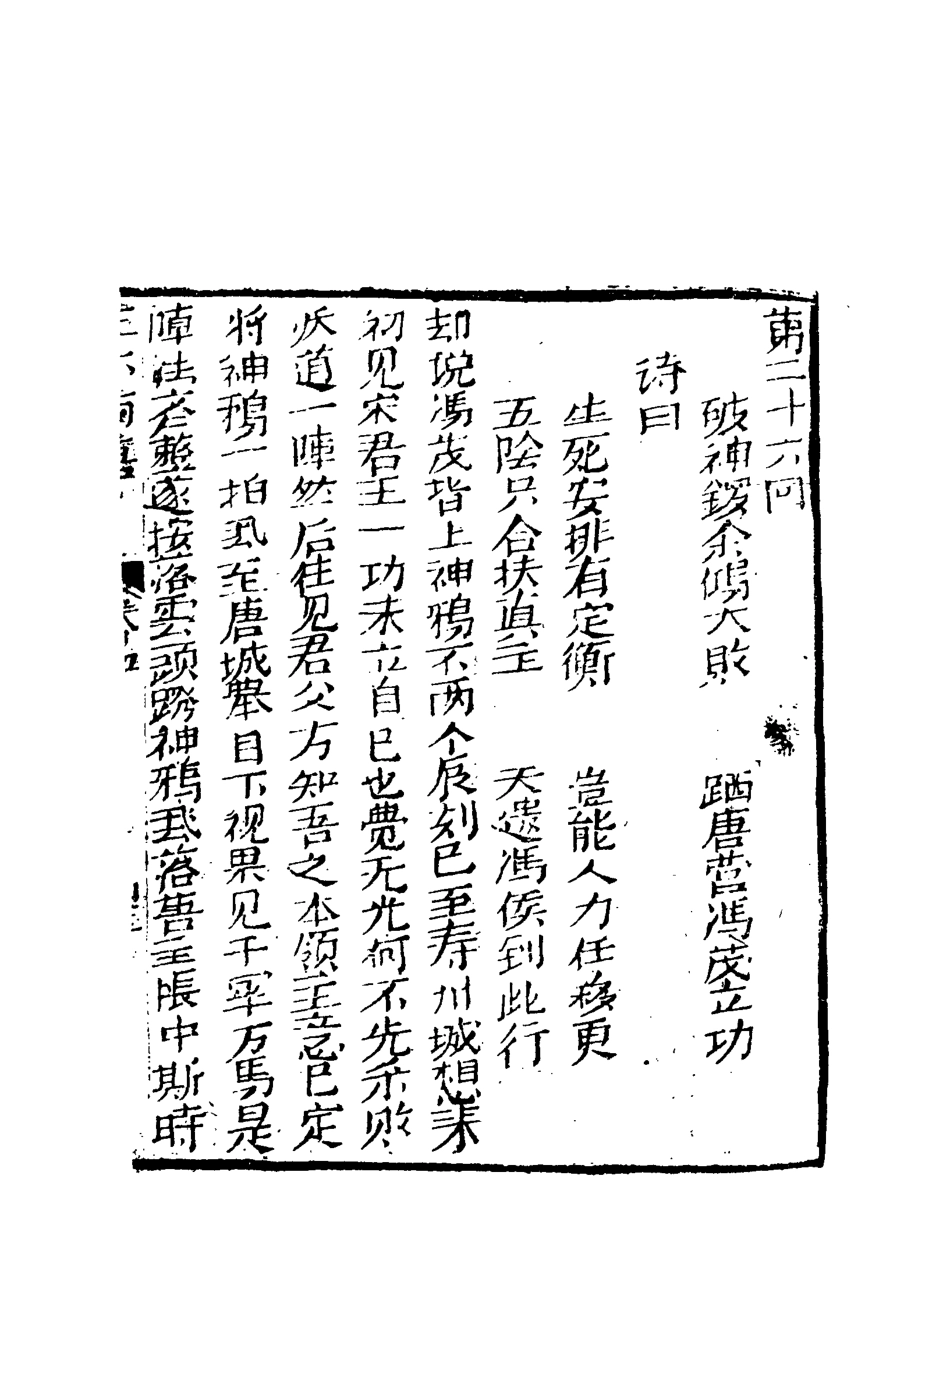 第二十六回
破神鑼余鴻大敗　踹唐营馮茂立功
诗曰
生死安排有定衡　豈能人力任移更
五陰只合扶真主　天遣馮侯到此行
却说馮茂背上神鴉不两个辰刻已至寿州城想来
初见宋君王一功未立自已也覺无光何不先杀败
妖道一陣然后往见君父方知吾之本領主意已定
将神鴉一拍飛至唐城舉目下视果见千军万馬是
陣法齐整遂按落雲头跨神鴉飛落营主帳中斯時